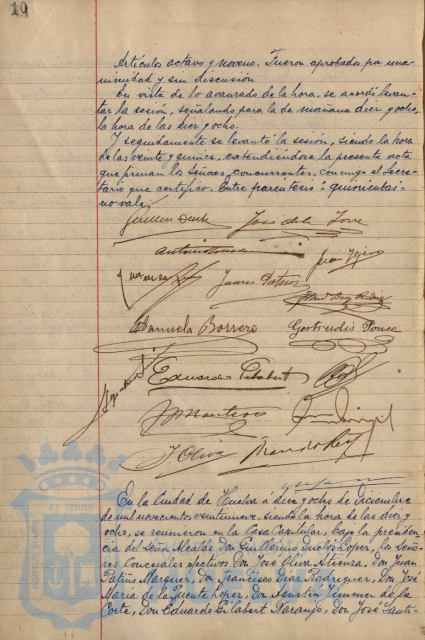 19
Artículos octavo y noveno. Fueron aprobados por una-
nimidad y sin discusión
En vista de lo avanzado de la hora, se acordó levan-
tar la sesión, señalando para la de mañana diez y ocho,
la hora de las diez y ocho.
Y seguidamente se levantó la sesión, siendo la hora
de las veinte y quince, extendiéndose la presente acta
que firman los Señores concurrentes, conmigo el Secre-
tario que certifico. Entre parentesis = quinientas =
no vale,
José de la Torre
Juan Tejero
Juan Patiño
Manuela Borrero Gertrudis Ponce
Eduardo Gilabert
J Montero
J Oliva
En la Ciudad de Huelva a diez y ocho de Diciembre
de mil novecientos veintinueve, siendo la hora de las diez y
ocho, se reunieron en la Casa Capitular, bajo la presiden-
cia del Señor Alcalde Don Guillermo Duclós Lopez, los Seño-
res Concejales efectivos Don José Oliva Atienza, Don Juan
Patiño Marquez, Don Francisco Diaz Rodriguez, Don José
Maria de la Puente Lopez, Don Agustin Jimenez de la
Corte, Don Eduardo Gilabert Naranjo, Don José Santo-
ET TERRÆ
PORTUS MARIS